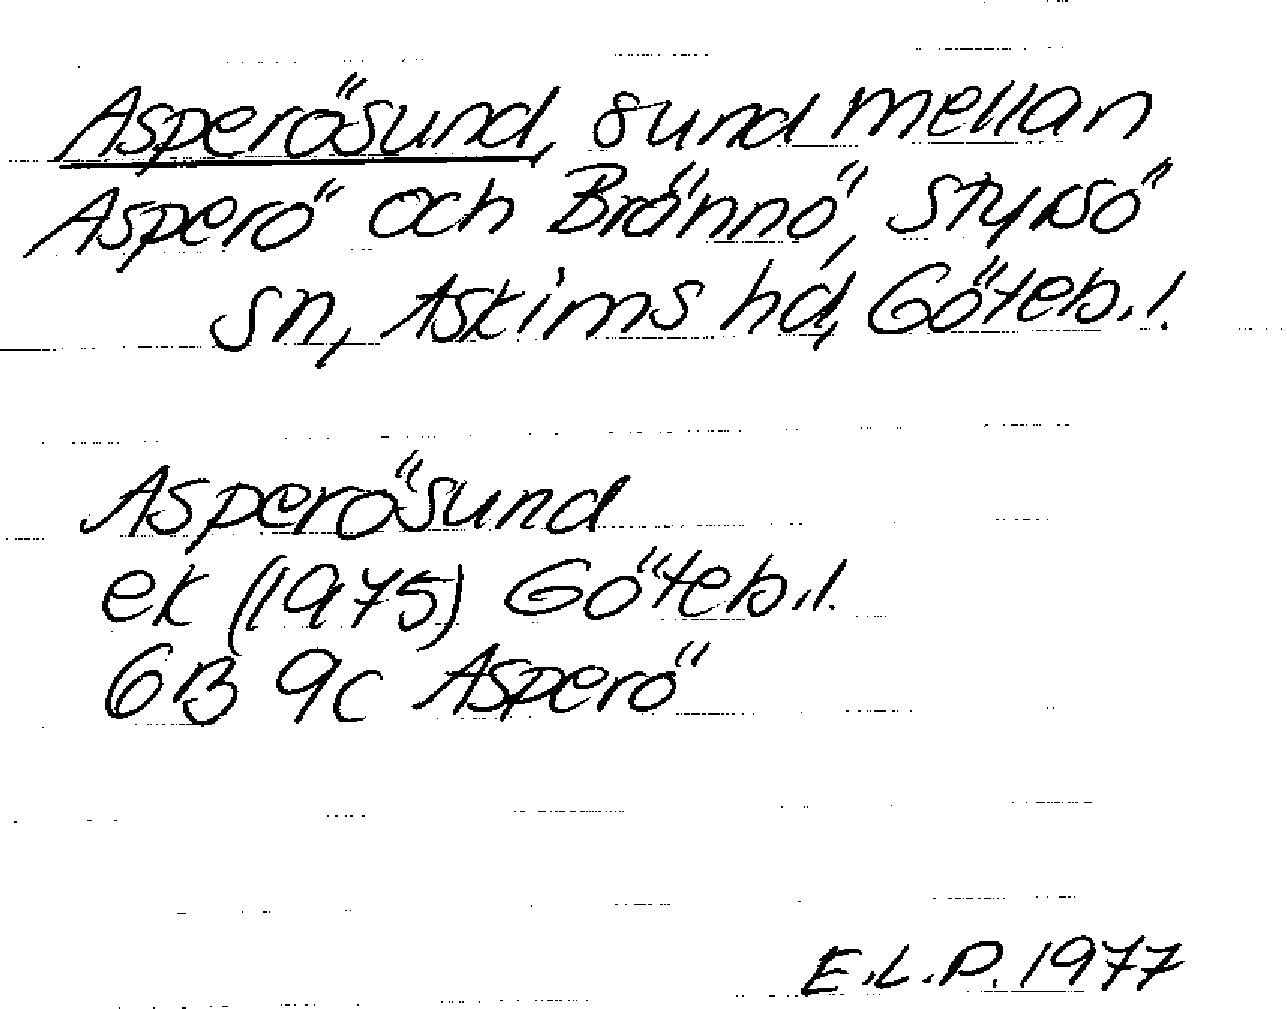 Asperösund, sund mellan
Asperö och Brännö, Styrsö
sn, Askims hd, Göteb.l.
Asperösund
ek (1975) Göteb.l.
6B 9c Asperö
E.L.P. 1977